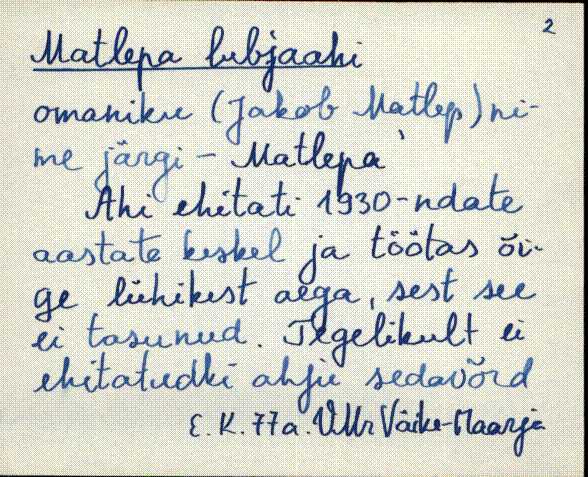 2
Matlepa lubjaahi
omaniku (Jakob Matlep) ni-
me järgi - Matlepa'
Ahi ehitati 1930-ndate
aastate keskel ja töötas õi-
ge lühikest aega, sest see
ei tasunud. Tegelikult ei
ehitatudki ahju sedavõrd
E. K. 77a. VMr Väike-Maarja